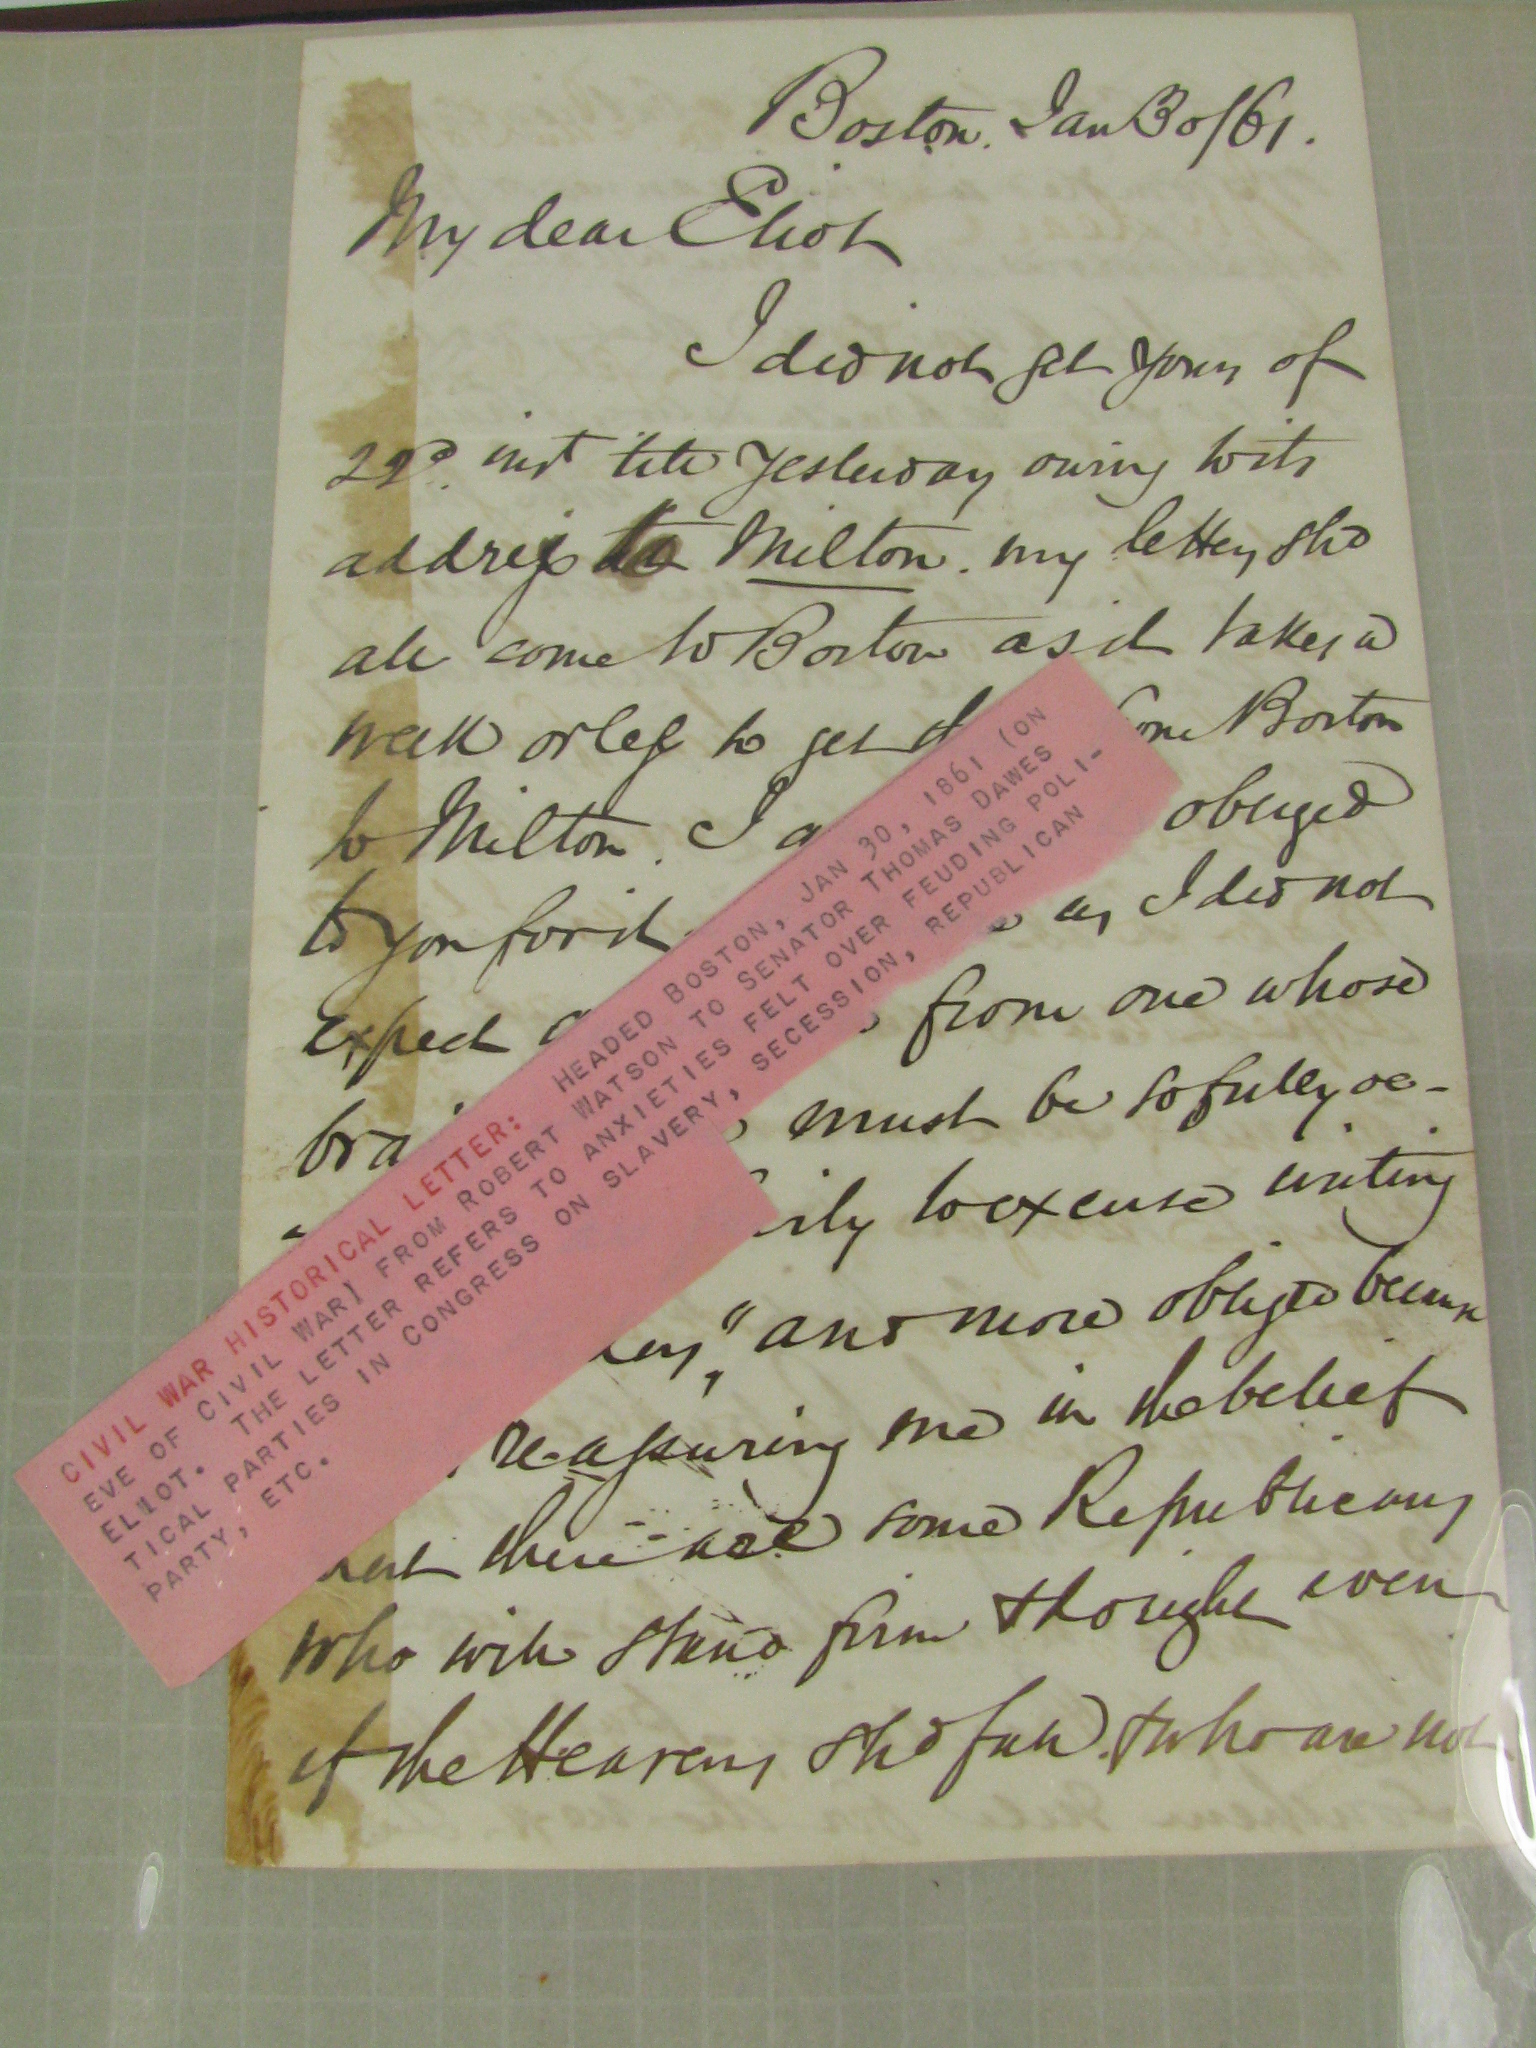 Boston. Jan 30/61.
My dear Eliot
I did not get yours of
22d. inst till yesterday owing to its
address to Milton. my letters shd
all come to Boston as it takes a
week or less to get from Boston
to Milton. I obliged
to you for it as I did not
expect from one whose
must be so fully oc-
to excuse writing
and more obliged because
re-assuring me in the belief
that there are some Republicans
who will stand firm & thought even
if the Heavens shd fall. & who are not
CIVIL WAR HISTORICAL LETTER: HEADED BOSTON, JAN 30, 1861 (ON
EVE OF CIVIL WAR] FROM ROBERT WATSON TO SENATOR THOMAS DAWES
ELIOT. THE LETTER REFERS TO ANXIETIES FELT OVER FEUDING POLI-
TICAL PARTIES IN CONGRESS ON SLAVERY, SECESSION, REPUBLICAN
PARTY, ETC.